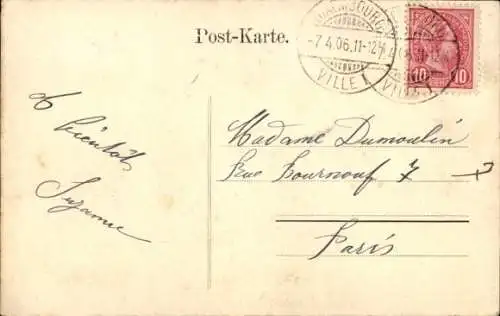 Post-Karte.
LUXEMBOURG
-7.4.06.11-12
VILLE 1
VILLE 1
10 10
à bientôt
Suzanne
Madame Dumoulin
Rue Bournouf 7
Paris